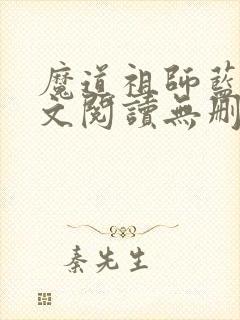 魔道祖師藍
文閱讀無刪
秦先生